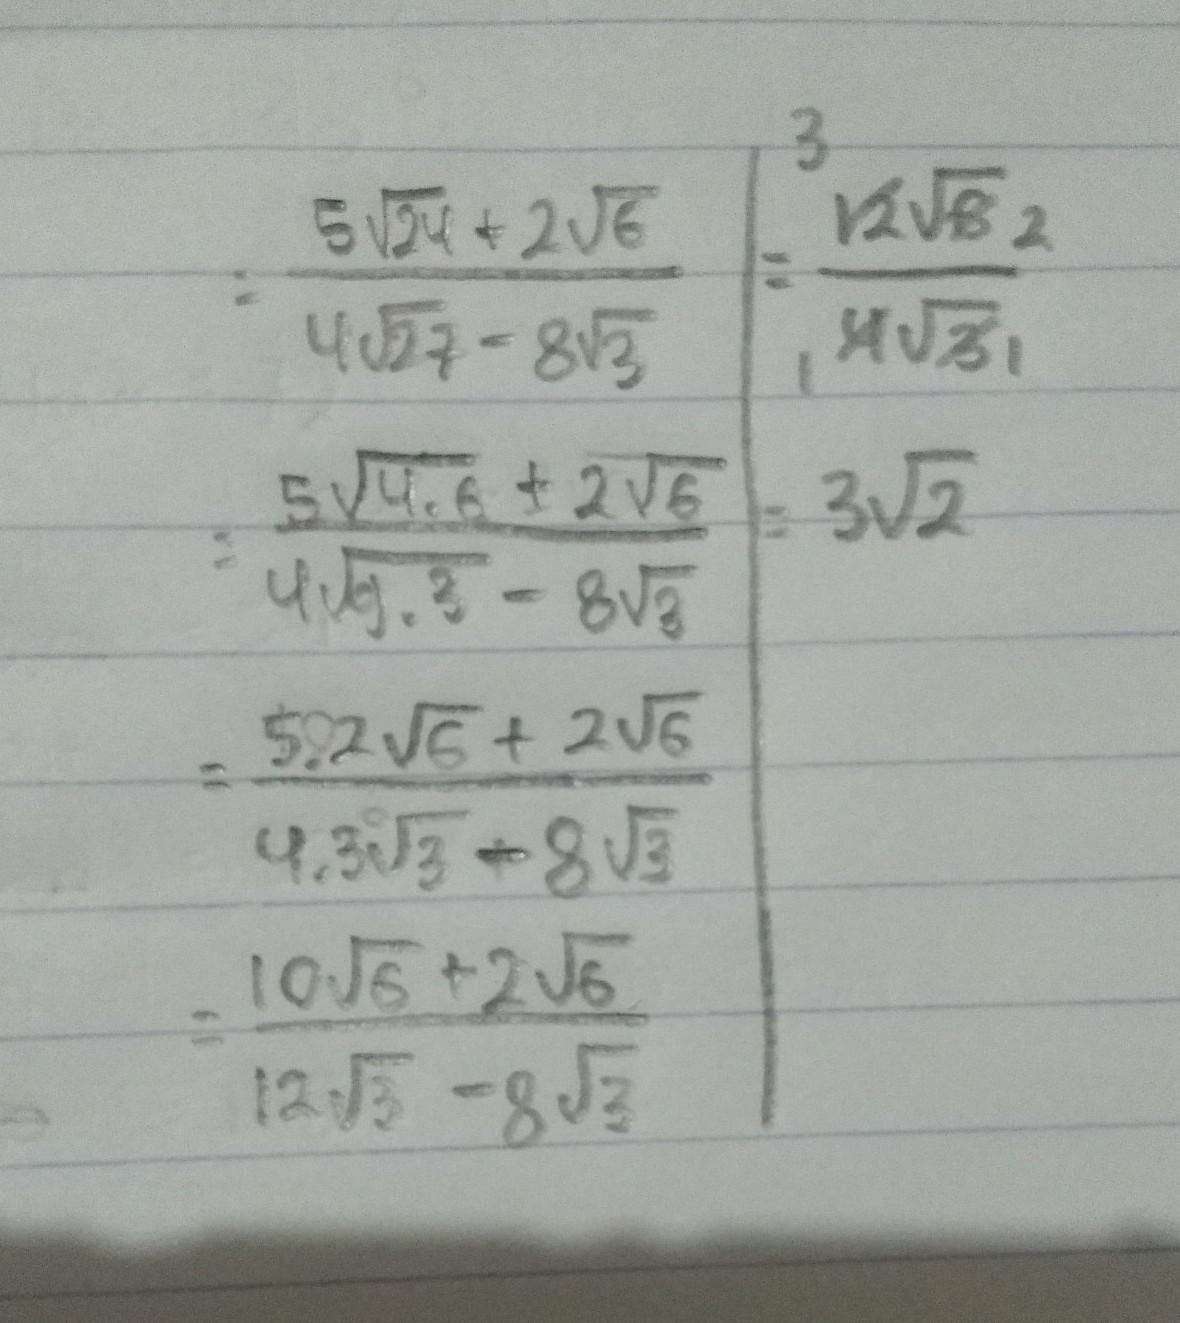 = (5√24 + 2√6) / (4√27 - 8√3)
= (5√4.6 + 2√6) / (4√9.3 - 8√3)
= (5.2√6 + 2√6) / (4.3√3 - 8√3)
= (10√6 + 2√6) / (12√3 - 8√3)
3
= 12√6 2 / 1 4√3 1
= 3√2